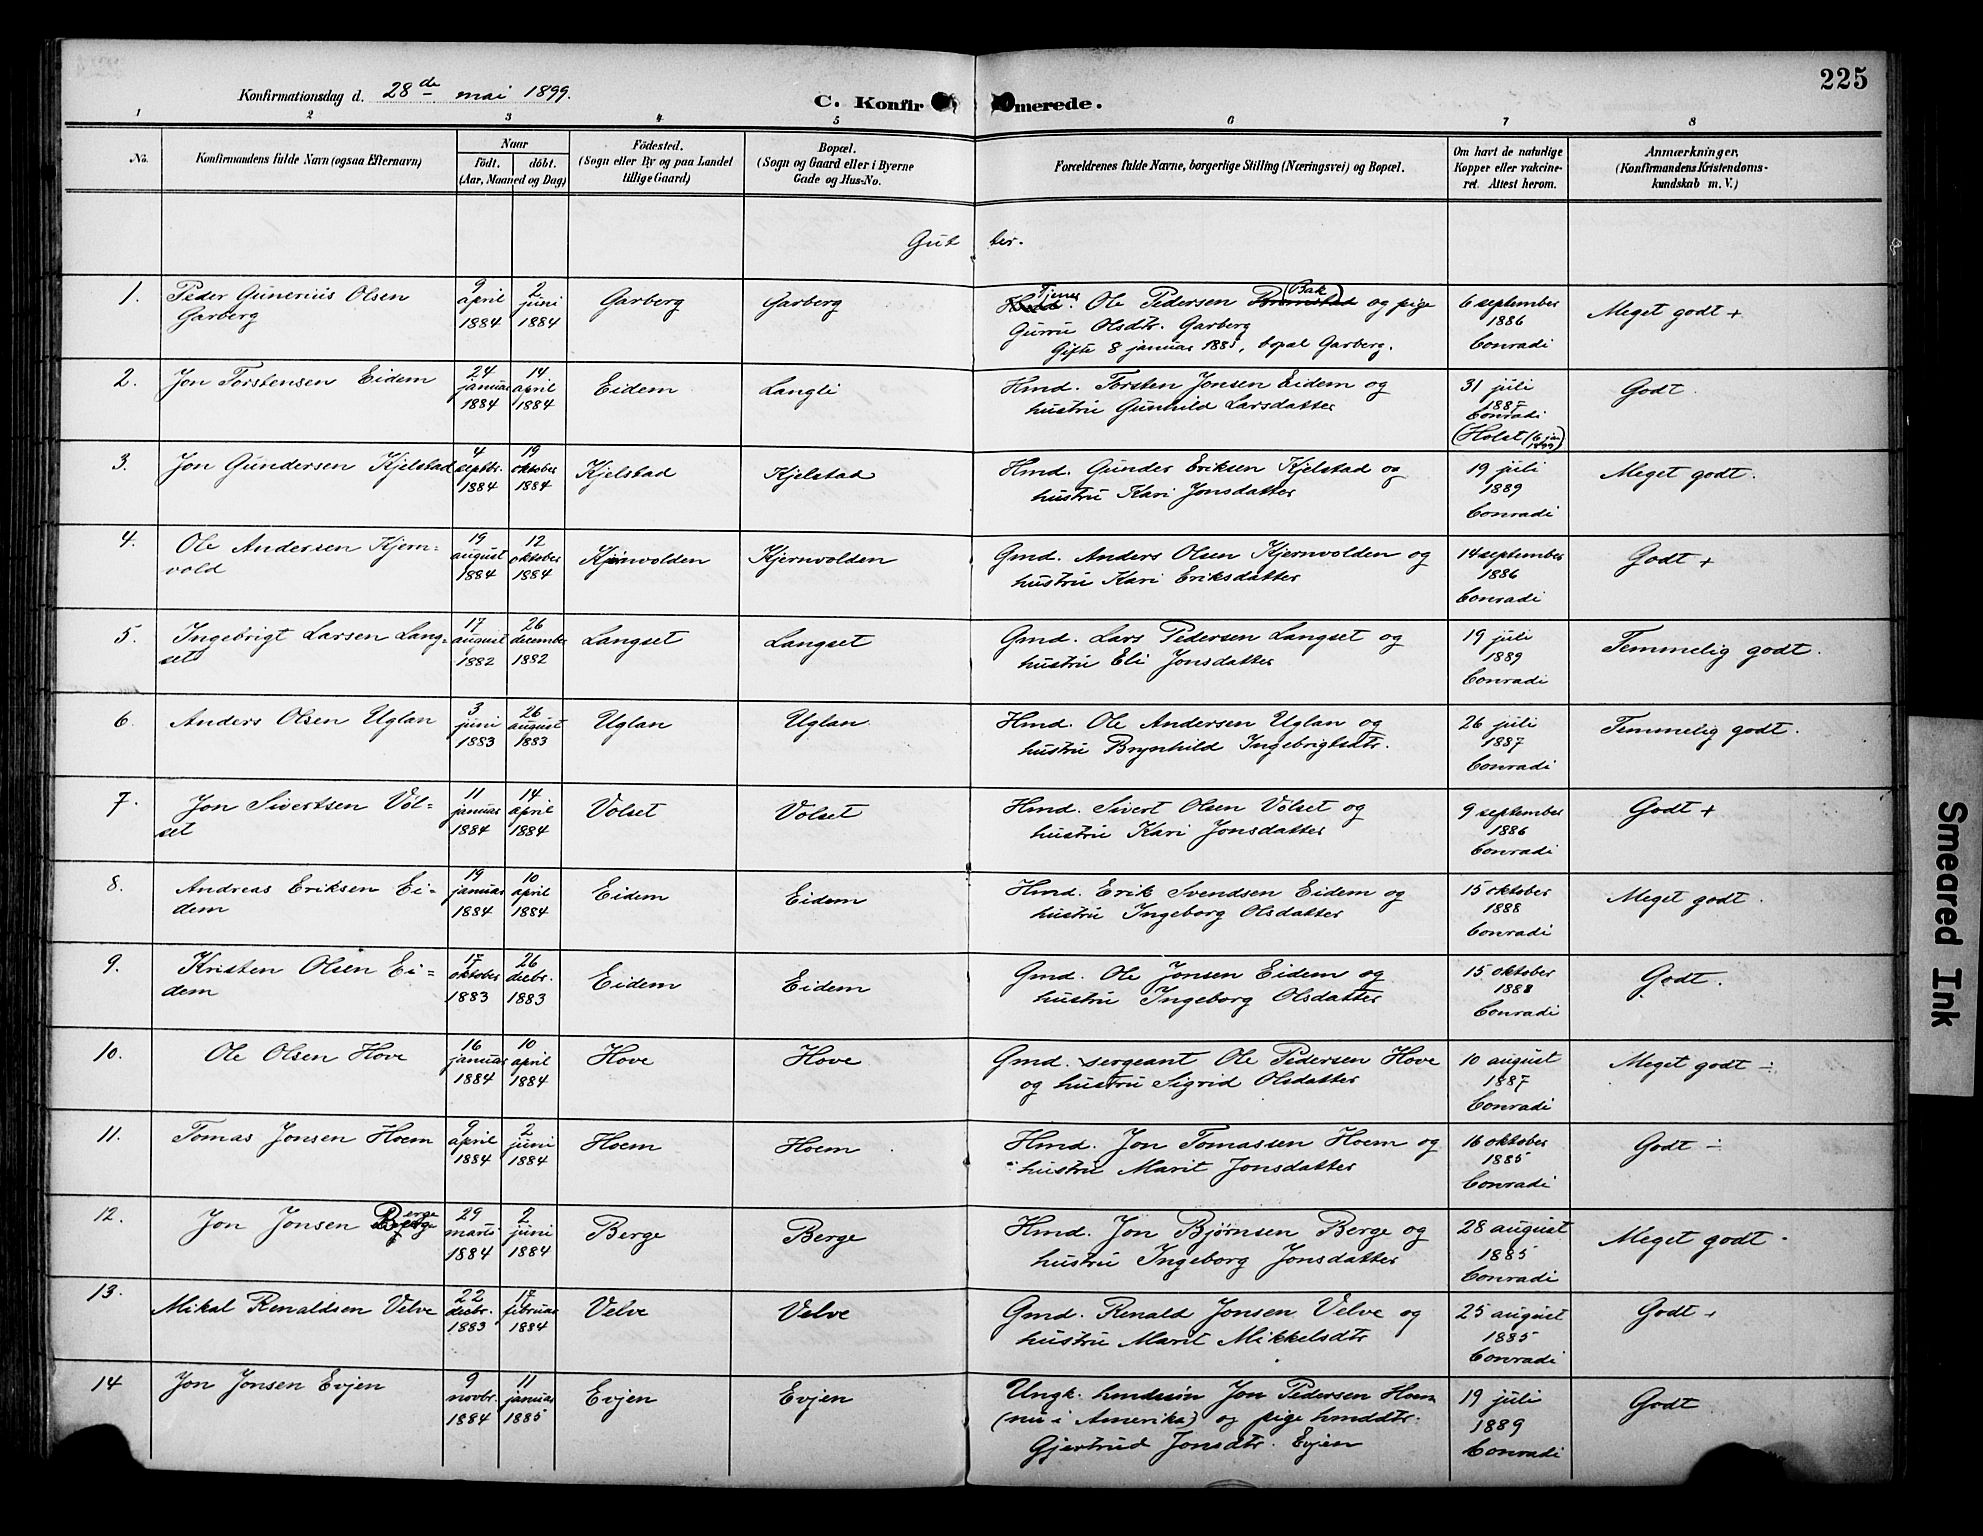 225
Konfirmationsdag d. 28de mai 1899.
C. Konfirmerede.
1 2 3 4 5 6 7 8
No.
Konfirmandens fulde Navn (ogsaa Efternavn)
Naar
födt. döbt.
(Aar, Maaned og Dag)
Födested.
(Sogn eller By og paa Landet
tillige Gaard)
Bopæl.
(Sogn og Gaard eller i Byerne
Gade og Hus-No.
Forældrenes fulde Navne, borgerlige Stilling (Næringsvei) og Bopæl.
Om havt de naturlige
Kopper eller vakcine-
ret. Attest herom.
Anmærkninger.
(Konfirmandens Kristendoms-
kundskab m. V.)
Gutter.
1. Peder Gunerius Olsen
Garberg
9 april 1884
2 juni 1884
Garberg
Garberg
Tjener Ole Pedersen (Bak) og pige
Gurru Olsdtr. Garberg
Gifte 8 januar 1885, bopæl Garberg.
6 september
1886
Conradi
Meget godt +
2. Jon Torstensen Eidem
24 januar 1884
14 april 1884
Eidem
Langli
Hmd. Torsten Jonsen Eidem og
hustru Gunhild Larsdatter
31 juli
1887
Conradi
(Holst
Godt.
3. Jon Gundersen Kjelstad
4 septbr. 1884
19 oktober 1884
Kjelstad
Kjelstad
Hmd. Gunder Eriksen Kjelstad og
hustru Kari Jonsdatter
19 juli
1889
Conradi
Meget godt.
4. Ole Andersen Kjern=
vold
19 august 1884
12 oktober 1884
Kjernvolden
Kjernvolden
Gmd. Anders Olsen Kjernvolden og
hustru Kari Eriksdatter
14 september
1886
Conradi
Godt +
5. Ingebrigt Larsen Lang=
set
17 august 1882
26 december 1882
Langset
Langset
Gmd. Lars Pedersen Langset og
hustru Eli Jonsdatter
19 juli
1889
Conradi
Temmelig godt.
6. Anders Olsen Uglan
3 juni 1883
26 august 1883
Uglan
Uglan
Hmd. Ole Andersen Uglan og
hustru Brynhild Ingebrigtsdtr.
26 juli
1887
Conradi
Temmelig godt.
7. Jon Sivertsen Vol=
set
11 januar 1884
14 april 1884
Volset
Volset
Hmd. Sivert Olsen Volset og
hustru Kari Jonsdatter
9 september
1886
Conradi
Godt +
8. Andreas Eriksen Ei=
dem
19 januar 1884
10 april 1884
Eidem
Eidem
Hmd. Erik Svendsen Eidem og
hustru Ingeborg Olsdatter
15 oktober
1888
Conradi
Meget godt.
9. Kristen Olsen Ei=
dem
17 oktober 1883
26 decbr. 1883
Eidem
Eidem
Gmd. Ole Jonsen Eidem og
hustru Ingeborg Olsdatter
15 oktober
1888
Conradi
Godt.
10. Ole Olsen Hove
16 januar 1884
10 april 1884
Hove
Hove
Gmd. sergeant Ole Pedersen Hove
og hustru Sigrid Olsdatter
10 august
1887
Conradi
Meget godt ÷
11. Tomas Jonsen Hoem
9 april 1884
2 juni 1884
Hoem
Hoem
Hmd. Jon Tomassen Hoem og
hustru Marit Jonsdatter
16 oktober
1885
Conradi
Godt ÷
12. Jon Jonsen Berge
29 marts 1884
2 juni 1884
Berge
Berge
Hmd. Jon Bjørnsen Berge og
hustru Ingeborg Jonsdatter
28 august
1885
Conradi
Meget godt.
13. Mikal Renaldsen Velve
22 decbr. 1883
17 februar 1884
Velve
Velve
Gmd. Renald Jonsen Velve og
hustru Marit Mikkelsdtr
25 august
1885
Conradi
Godt +
14 Jon Jonsen Evjen
9 novbr. 1884
11 januar 1885
Evjen
Evjen
Ungk. hmdssøn Jon Pedersen Hoem
(nu i Amerika) og pige hmddtr.
Gjertrud Jonsdtr. Evjen
19 juli
1889
Conradi
Godt
Smeared Ink